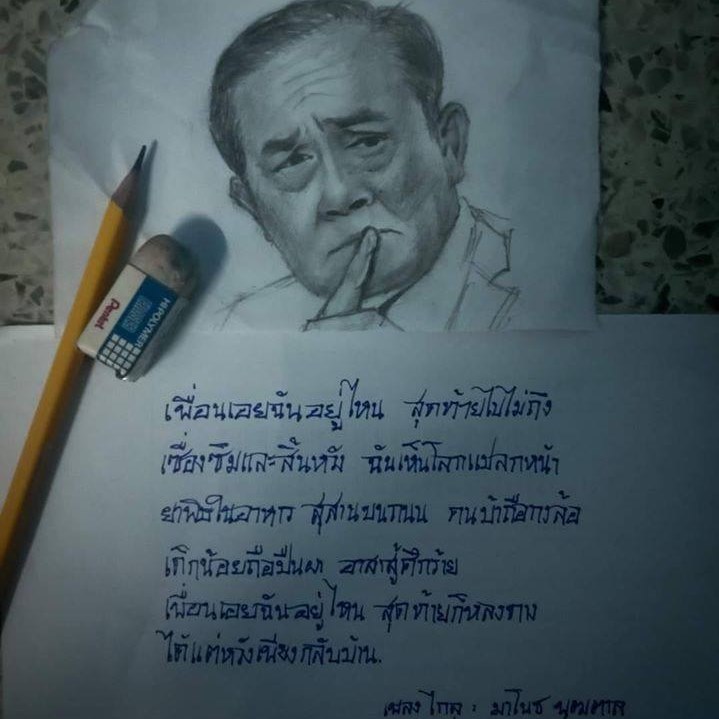 Pentel
HI-POLYMER
ERASER
เพื่อนเอยฉันอยู่ไหน สุดท้ายไปไม่ถึง
เซื่องซึมและสิ้นหวัง ฉันเห็นโลกแปลกหน้า
ยาพิษในอาหาร สุสานบนถนน คนบ้าถือกงล้อ
เด็กน้อยถือปืนผา อาสาสู้ศึกร้าย
เพื่อนเอยฉันอยู่ไหน สุดท้ายก็หลงทาง
ได้แต่หวังเพียงกลับบ้าน.
เพลง ไกล : มาโนช พุฒตาล